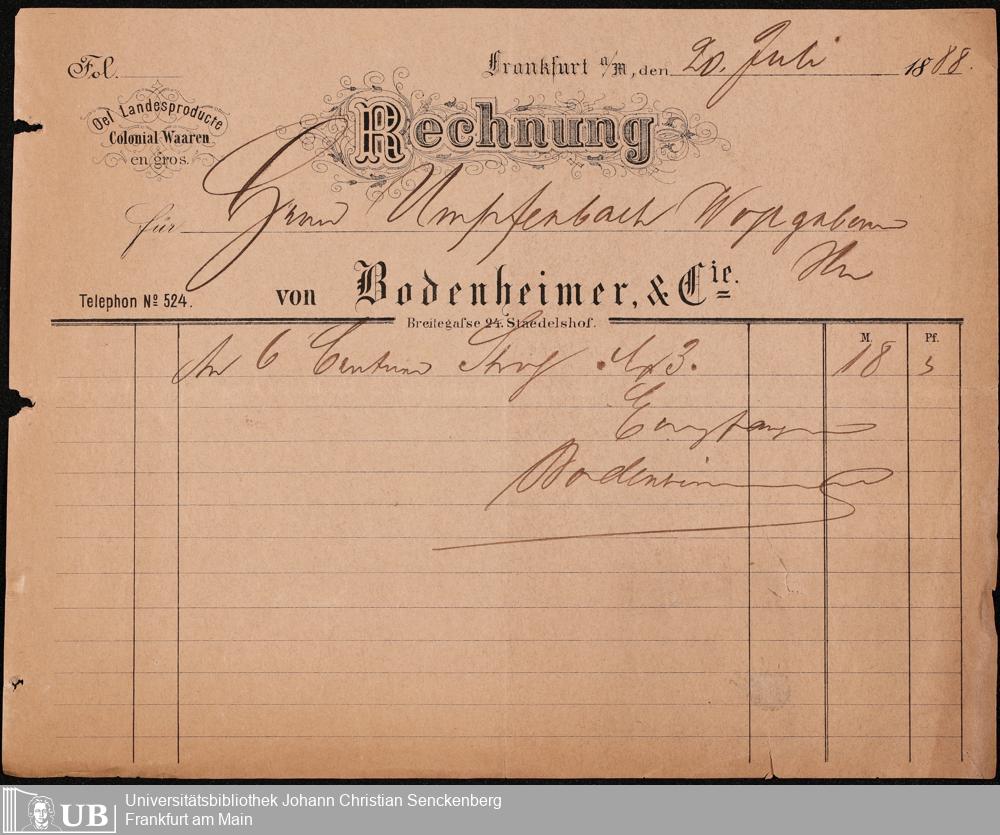 Fol.
Frankfurt a/M, den 20. Juli 1888.
Oel Landesproducte
Colonial Waaren
en gros.
Rechnung
für Herrn Umpfenbach
Telephon No 524.
von Bodenheimer, & Cie.
Breitegasse 24. Staedelshof.
M. Pf.
An 6 Centner 3. 18
Empfangen
Bodenheimer
UB
Universitätsbibliothek Johann Christian Senckenberg
Frankfurt am Main